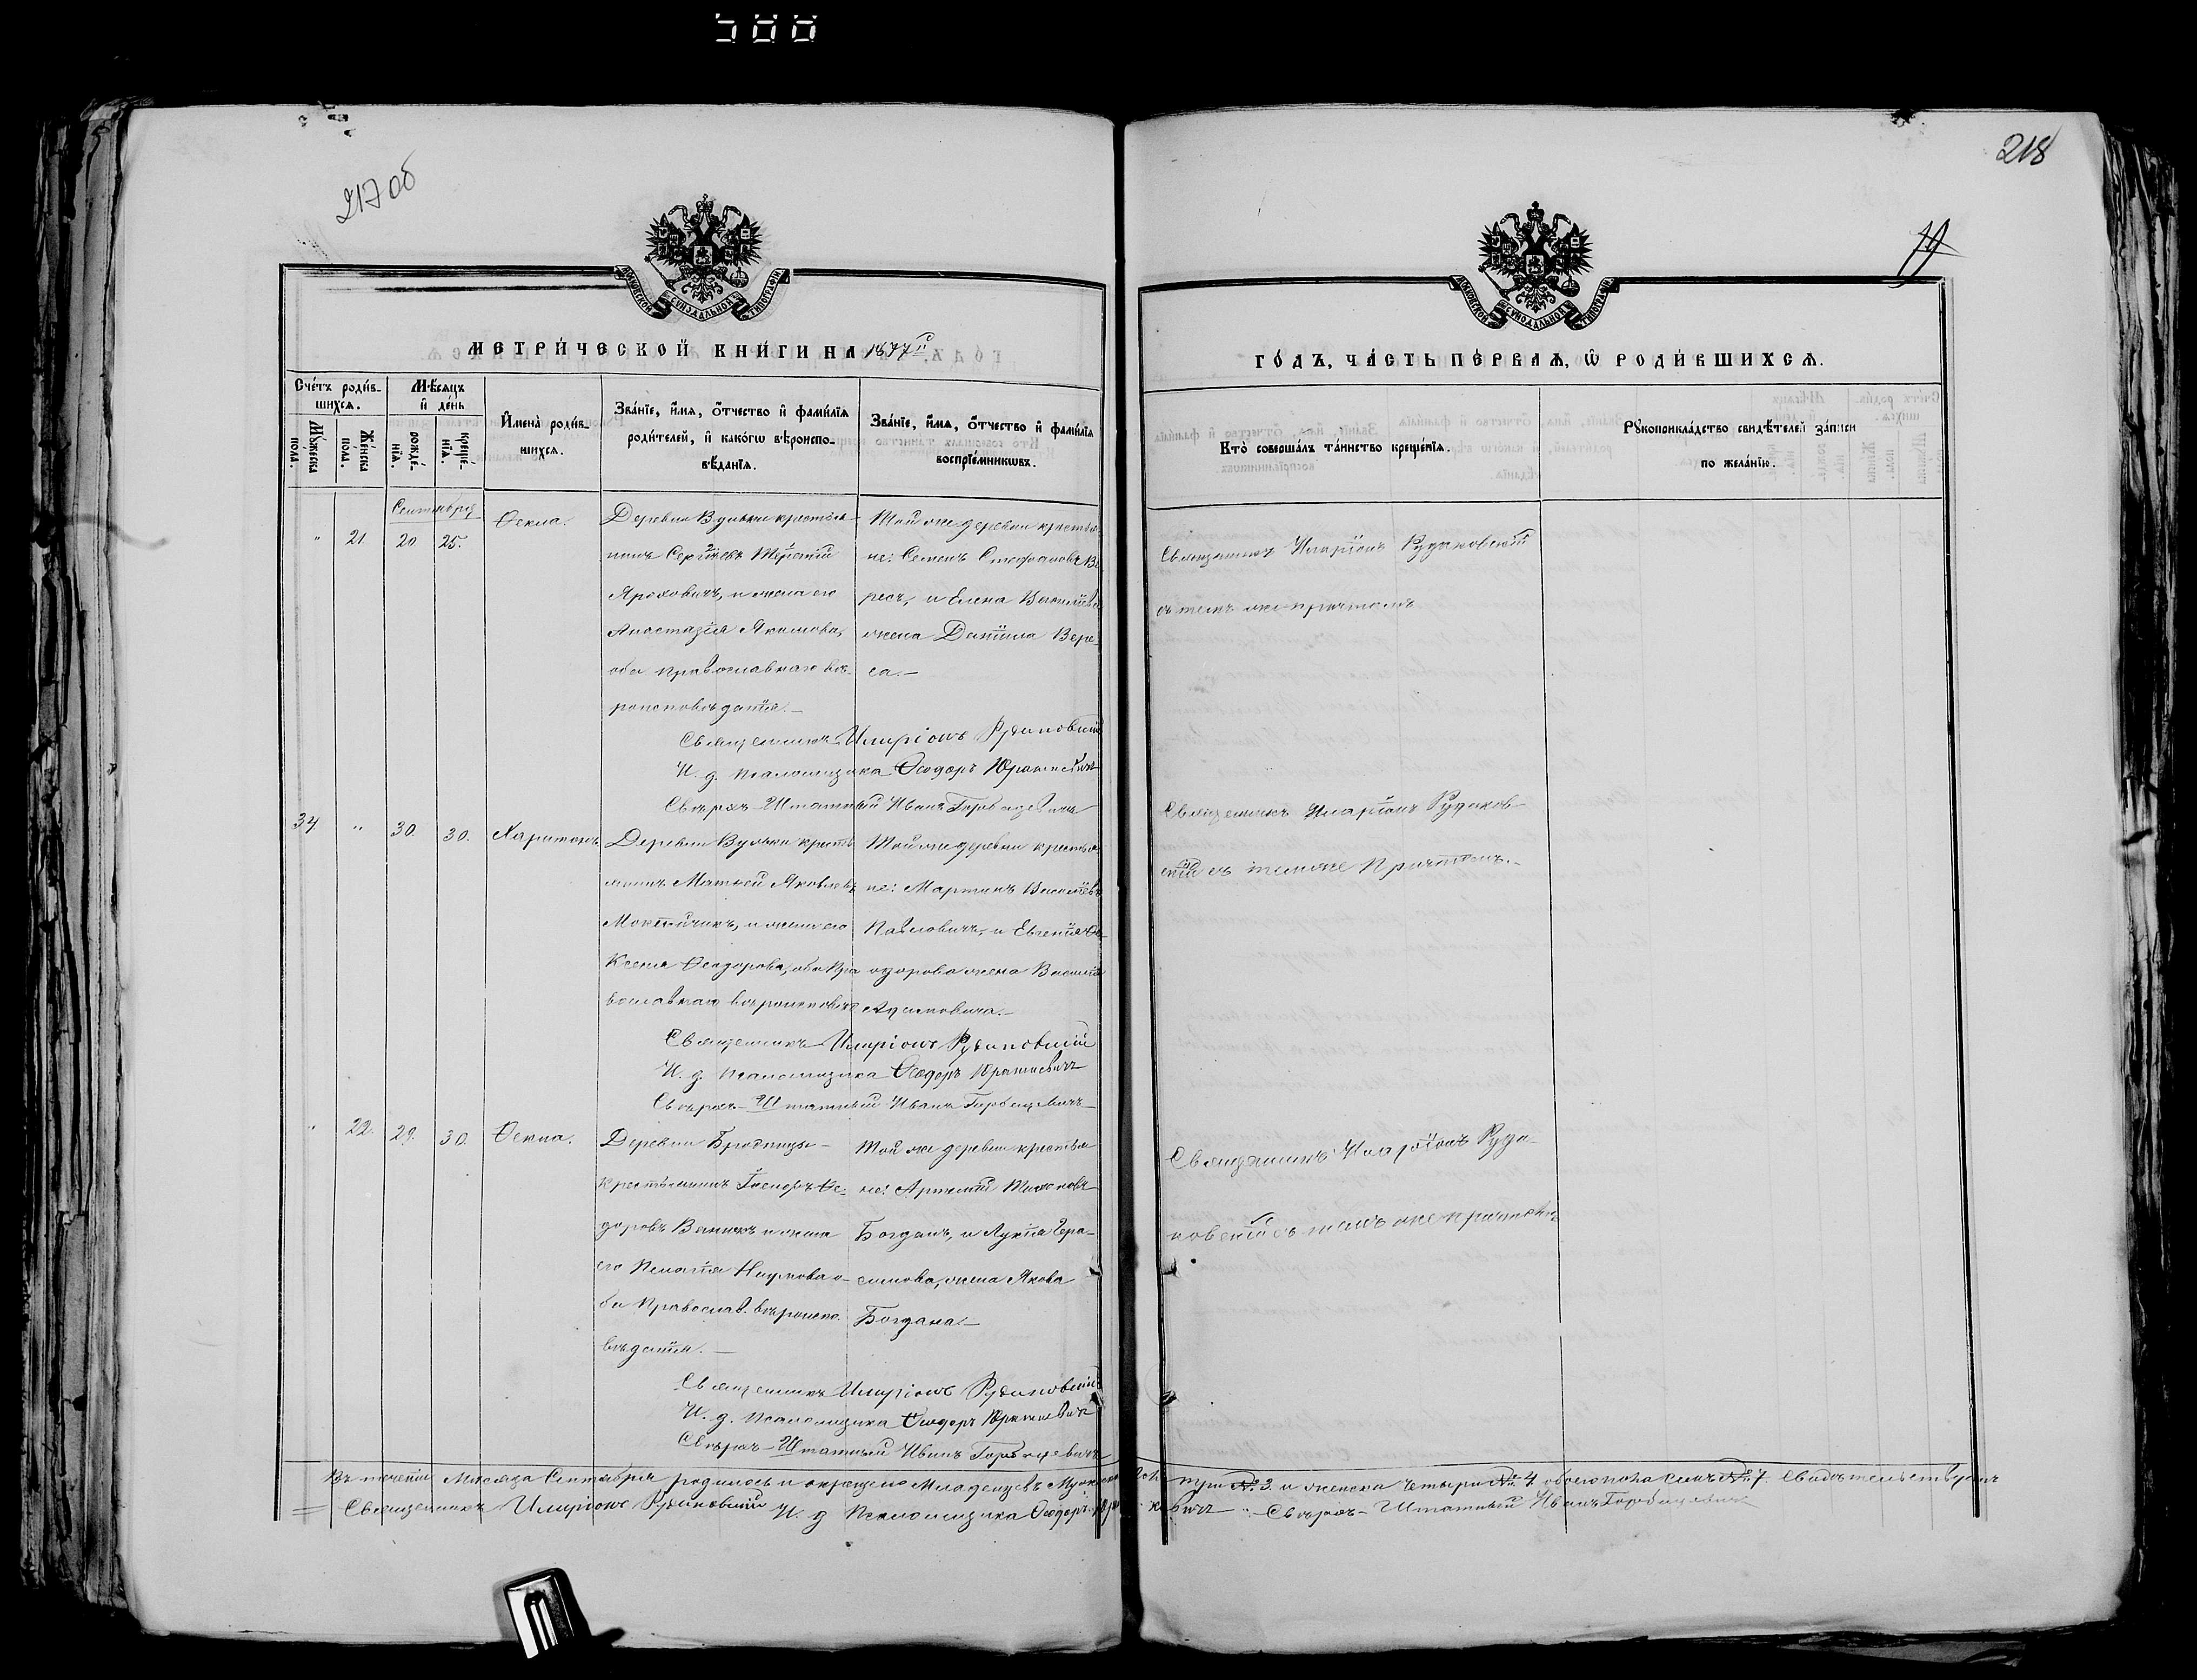 217 об
218
МОСКОВСКОЙ СѴНОДАЛЬНОЙ ТИПОГРАФІИ
МОСКОВСКОЙ СѴНОДАЛЬНОЙ ТИПОГРАФІИ
МЕТРИ́ЧЕСКОЙ КНИ́ГИ НА 1897й
ГО́ДЪ, ЧА́СТЬ ПЕ́РВАѦ, Ѡ҆ РОДИ́ВШИХСѦ.
Сче́тъ роди́в-
шихсѧ.
Мꙋ́жеска пола.
Же́нска пола.
Мѣ́сѧцъ
и҆ де́нь
рожде́-
нїѧ.
креще́-
нїѧ.
И҆мена̀ роди́в-
шихсѧ.
Зва́нїе, и҆́мѧ, ѻ҆́тчество и҆ фами́лїѧ
роди́телей, и҆ како́гѡ вѣроиспо-
вѣ́данїѧ.
Зва́нїе, и҆́мѧ, ѻ҆́тчество и҆ фами́лїѧ
воспрїе́мникѡвъ.
Кто̀ соверша́лъ та́инство креще́нїѧ.
Рꙋкоприкла́дство свидѣ́телей за́писи
по жела́нїю.
Сентября
" 21 20 25. Ѳекла.
Деревни Вульки крестья-
нинъ Сергіевъ
Яроховичъ, и жена его
Анастазія Якимова,
оба православнаго вѣ-
роисповѣданія.—
Той же деревни крестья-
не: Семенъ Стефановъ Ве-
ресъ, и Елена Василіева
жена Даніила Вере-
са.—
Священникъ Иларіонъ Рудаковскій
съ тѣмъ же причтомъ
Священникъ Иларіонъ Рудаковскій
И. д. псаломщика Ѳеодоръ
Сверхъ-Штатный Иванъ Горбацевичъ
34 " 30. 30. Харитонъ
Деревни Вульки крестья-
нинъ Матвей Яковлевъ
и жена его
Ксенія Ѳеодорова, оба пра-
вославнаго вѣроисповѣд.
Той же деревни крестья-
не: Мартинъ Василіевъ
Павловичъ, и Евгенія Ѳе-
одорова жена Василія
Адамовича.—
Священникъ Иларіонъ Рудаков-
скій съ тѣмъ же причтомъ.—
Священникъ Иларіонъ Рудаковскій
И. д. псаломщика Ѳеодоръ
Сверхъ-Штатный Иванъ Горбацевичъ
" 22. 29. 30. Ѳекла.
Деревни Бродницы
крестьянинъ Ѳе-
доровъ и жена
его Пелагія Наумова о-
ба православ. вѣроиспо-
вѣданія.—
Той же деревни крестья-
не: Артемій Тихоновъ
Богданъ, и Лукія Гера-
симова, жена Якова
Богдана.—
Священникъ Иларіонъ Руда-
ковскій съ тѣмъ же причтомъ
Священникъ Иларіонъ Рудаковскій
И. д. псаломщика Ѳеодоръ
Сверхъ-Штатный Иванъ Горбацевичъ
Въ теченіи Мѣсяца Сентября родилось и окрещено Младенцевъ Мужеска пола три № 3. и женска четыре № 4 обоего пола семь № 7. Свидѣтельствуемъ
Священникъ Иларіонъ Рудаковскій И. д. Псаломщика Ѳеодоръ Сверхъ-Штатный Иванъ Горбацевичъ